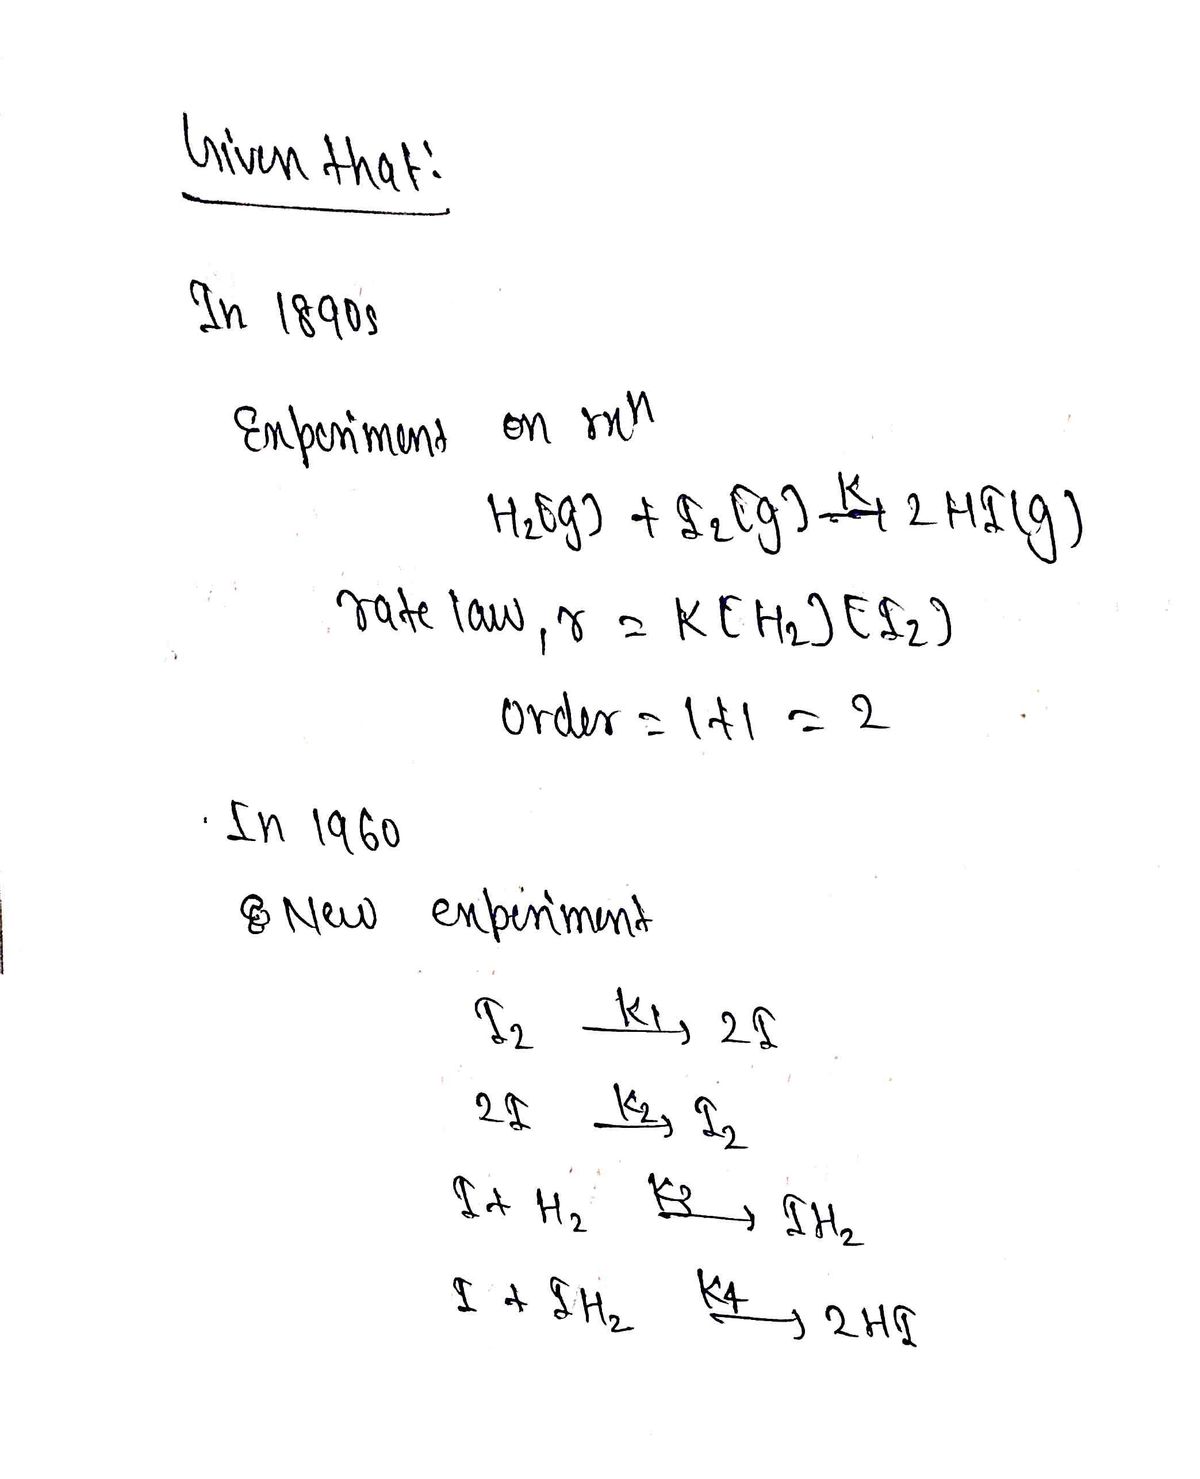 Given that:
In 1890s
Experiment on rxn
H2(g) + I2(g) K→ 2HI(g)
rate law, r = K[H2][I2]
order = 1+1 = 2
In 1960
New experiment
I2 K1→ 2I
2I K2→ I2
I + H2 K3→ IH2
I + IH2 K4→ 2HI